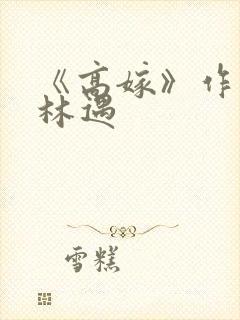 《高嫁》作
林遇
雪糕